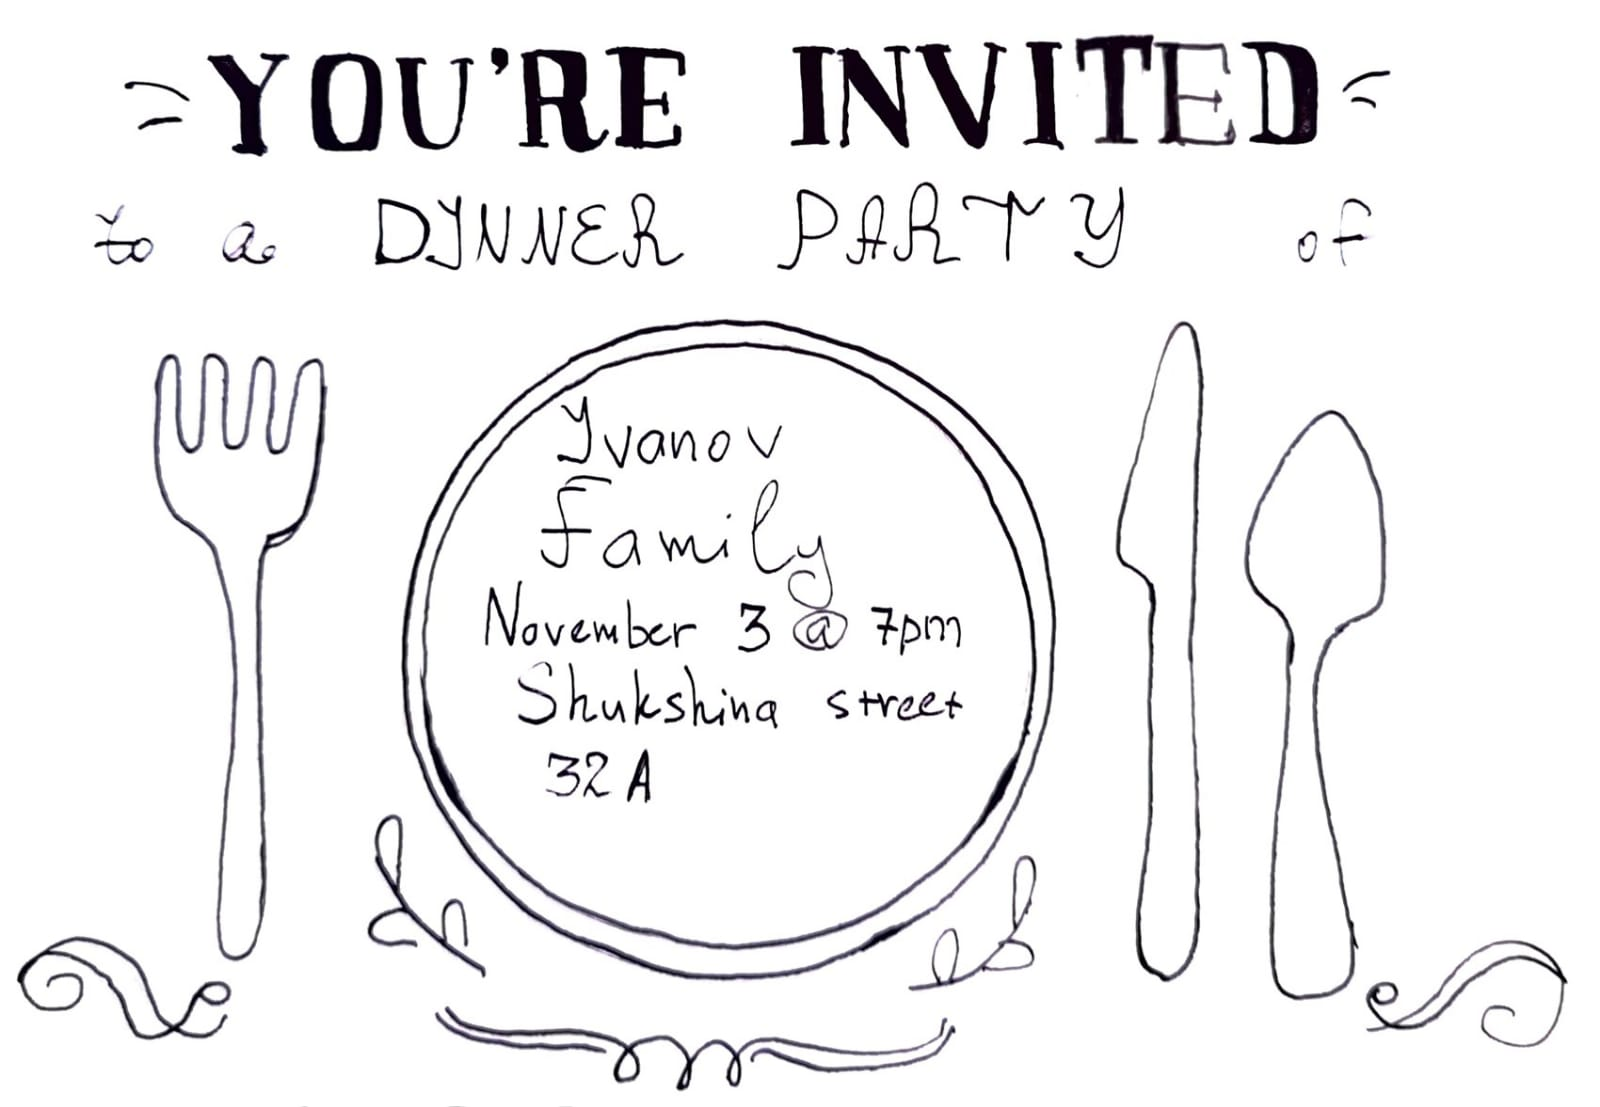 YOU'RE INVITED
to a DINNER PARTY of
Ivanov
Family
November 3 @ 7pm
Shukshina street
32A